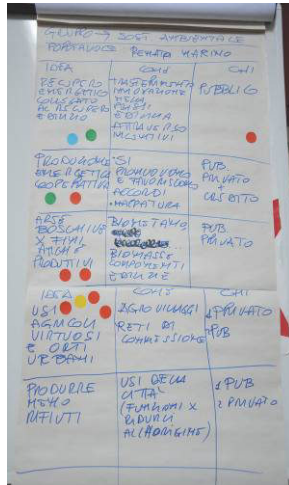 GRUPPO → SOST. AMBIENTALE
PORTAVOCE RENATA MARINO
IDEA COME CHI
RECUPERO
ENERGETICO
COLLEGATO
AL RECUPERO
EDILIZIO
TRASFERIMENTO
INNOVAZIONE
NELLA
EDILIZIA
ATTRAVERSO
INCENTIVI
PUBBLICO
PRODUZIONE
ENERGETICA
COOPERATIVA
SI
PROMUOVONO
E FAVORISCONO
ACCORDI
MAPPATURA
PUB.
PRIVATO
+
CREDITO
AREE
BOSCHIVE
X FINI
ANCHE
PRODUTTIVI
BIOMETANO,
BIOMASSE
COMPONENTI
EDILIZIE
PUB.
PRIVATO
IDEA COME CHI
USI
AGRICOLI
VIRTUOSI
E ORTI
URBANI
AGRO VILLAGGI
RETI DI
CONNESSIONE
1 PRIVATO
2 PUB
PRODURRE
MENO
RIFIUTI
USI DELLA
CITTÀ
(FUNZIONI X
RIDURLI
ALL'ORIGINE)
1 PUB
2 PRIVATO